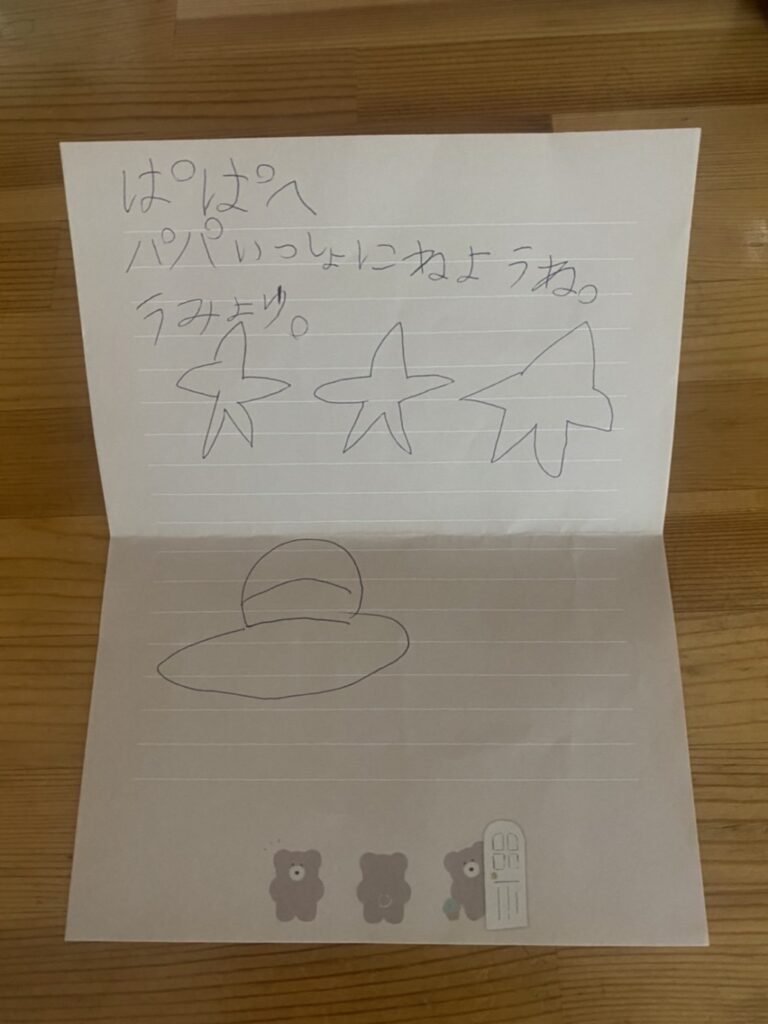 ぱぱへ
パパいっしょにねようね。
うみより。